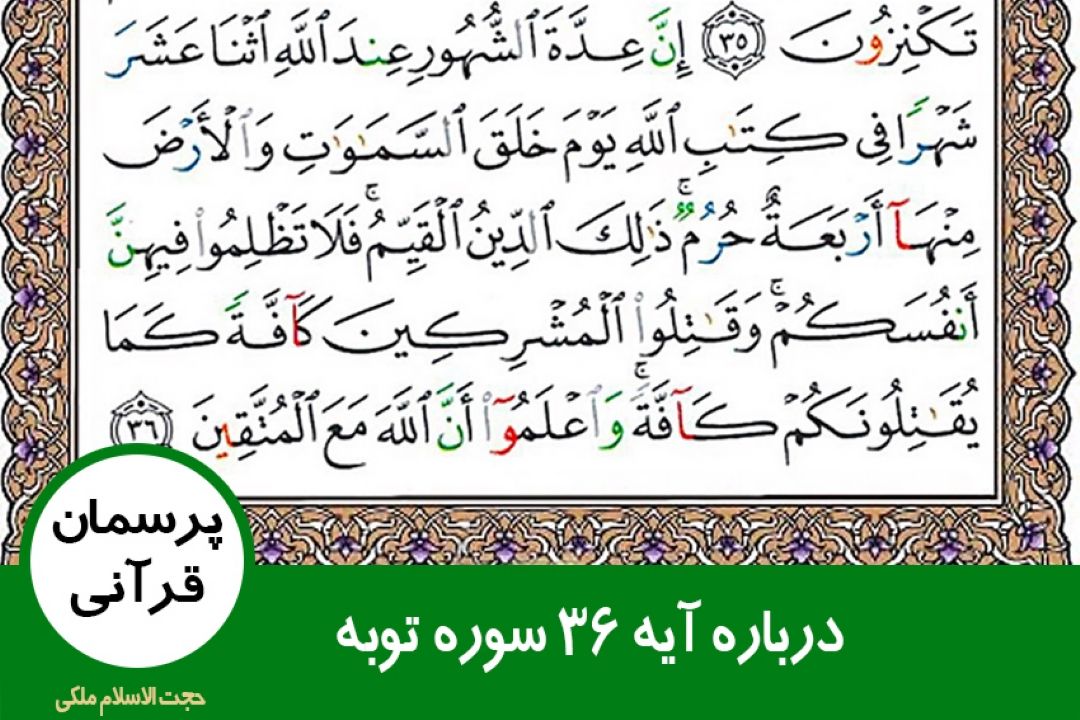 تَكْنِزُونَ ﴿٣٥﴾ إِنَّ عِدَّةَ ٱلشُّهُورِ عِندَ ٱللَّهِ ٱثْنَا عَشَرَ
شَهْرًا فِي كِتَٰبِ ٱللَّهِ يَوْمَ خَلَقَ ٱلسَّمَٰوَٰتِ وَٱلْأَرْضَ
مِنْهَآ أَرْبَعَةٌ حُرُمٌ ۚ ذَٰلِكَ ٱلدِّينُ ٱلْقَيِّمُ ۚ فَلَا تَظْلِمُوا۟ فِيهِنَّ
أَنفُسَكُمْ ۚ وَقَٰتِلُوا۟ ٱلْمُشْرِكِينَ كَآفَّةً كَمَا
يُقَٰتِلُونَكُمْ كَآفَّةً ۚ وَٱعْلَمُوٓا۟ أَنَّ ٱللَّهَ مَعَ ٱلْمُتَّقِينَ ﴿٣٦﴾
پرسمان
قرآنی
درباره آیه ۳۶ سوره توبه
حجت الاسلام ملکی